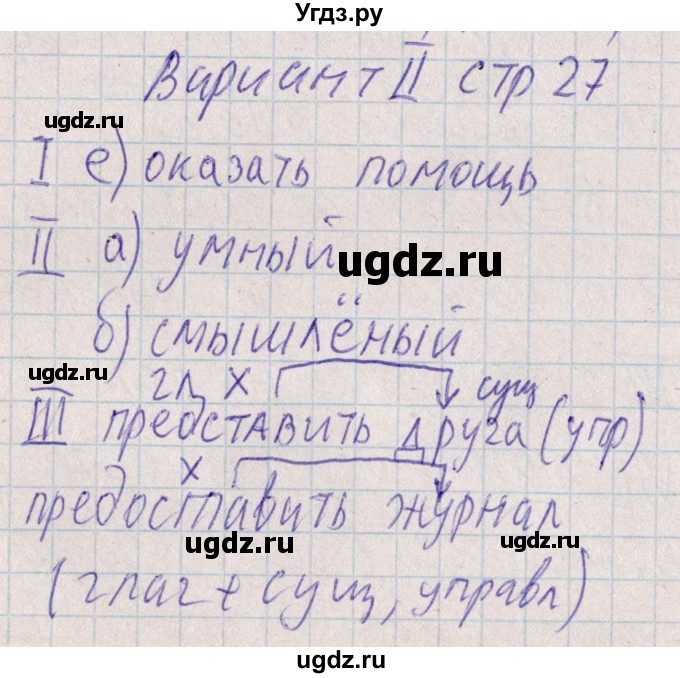 Угдз.ру
Вариант II стр 27
ugdz.ru
I е) оказать помощь
II а) умный
ugdz.ru
б) смышлёный
ugdz.ru
гл х сущ
III представить друга (упр)
ugdz.ru
х
предоставить журнал
ugdz.ru ugdz.ru
(глаг + сущ, управл)
ugdz.ru